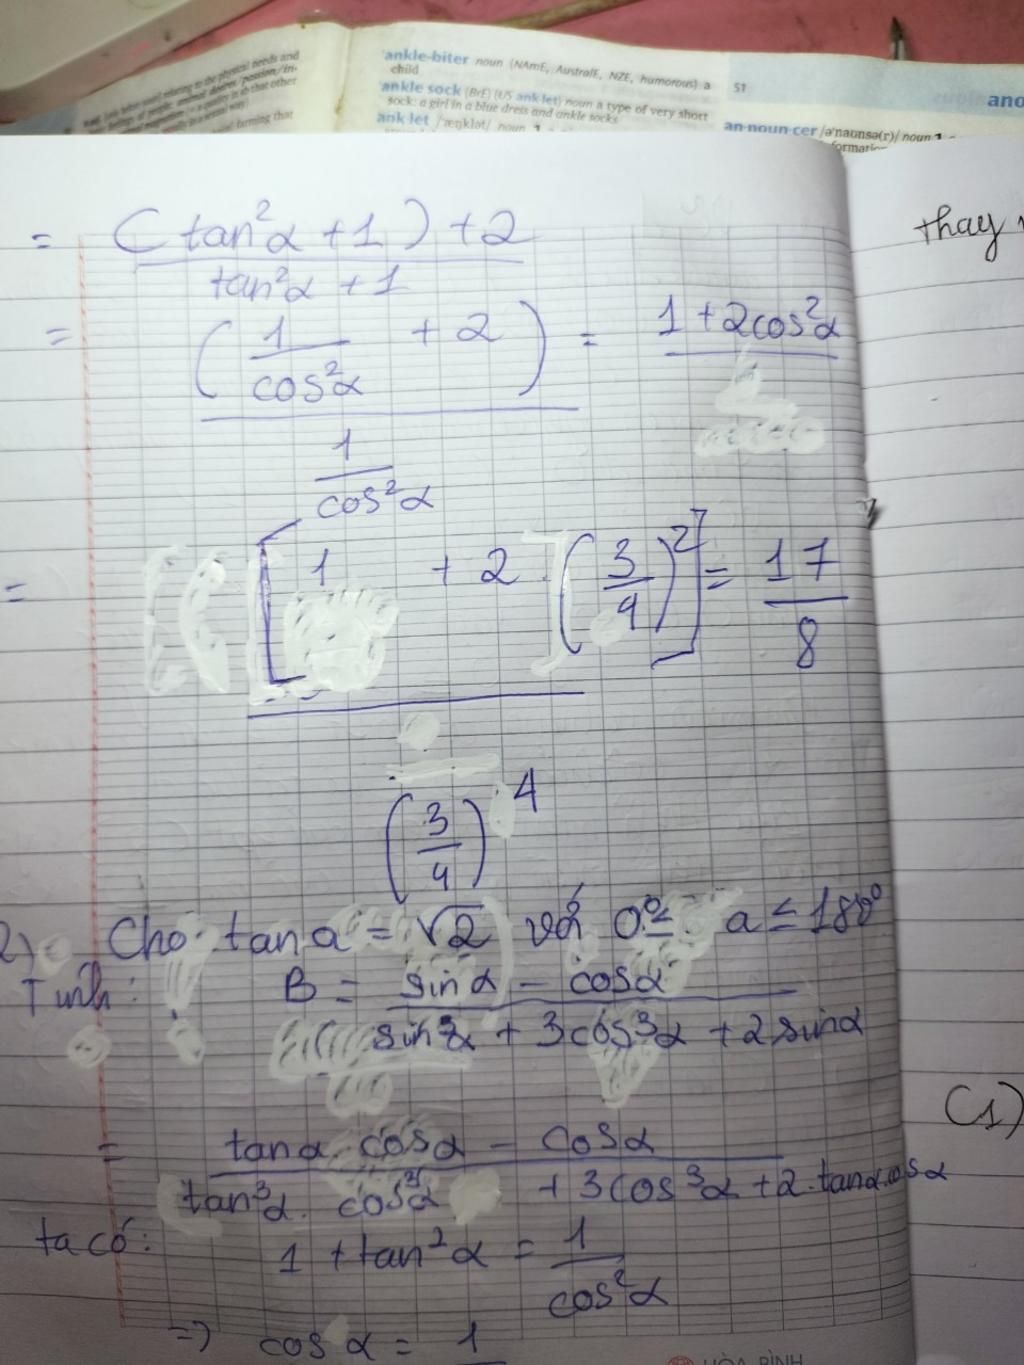 ankle-biter noun (NAmE, AustralE, NZE, humorous) a
child
ankle sock (BrE) (US ank·let) noun a type of very short
sock: a girl in a blue dress and ankle socks
ank·let /ˈæŋklət/ noun 1
51
ano
an·noun·cer /əˈnaʊnsə(r)/ noun 1
= (tan²α + 1) + 2
tan²α + 1
= ( 1 + 2 ) = 1 + 2cos²α
cos²α
1
cos²α
= [ 1 + 2 (3/4)² ] = 17/8
(3/4)⁴
2) Cho tan a = √2 với 0° ≤ a ≤ 180°
Tính: B = sinα - cosα
sin³α + 3cos³α + 2sinα
= tanα cosα - cosα
tan³α . cos³α + 3cos³α + 2.tanα.cosα
ta có:
1 + tan²α = 1
cos²α
=> cosα = 1
thay
(1)
HÒA BÌNH